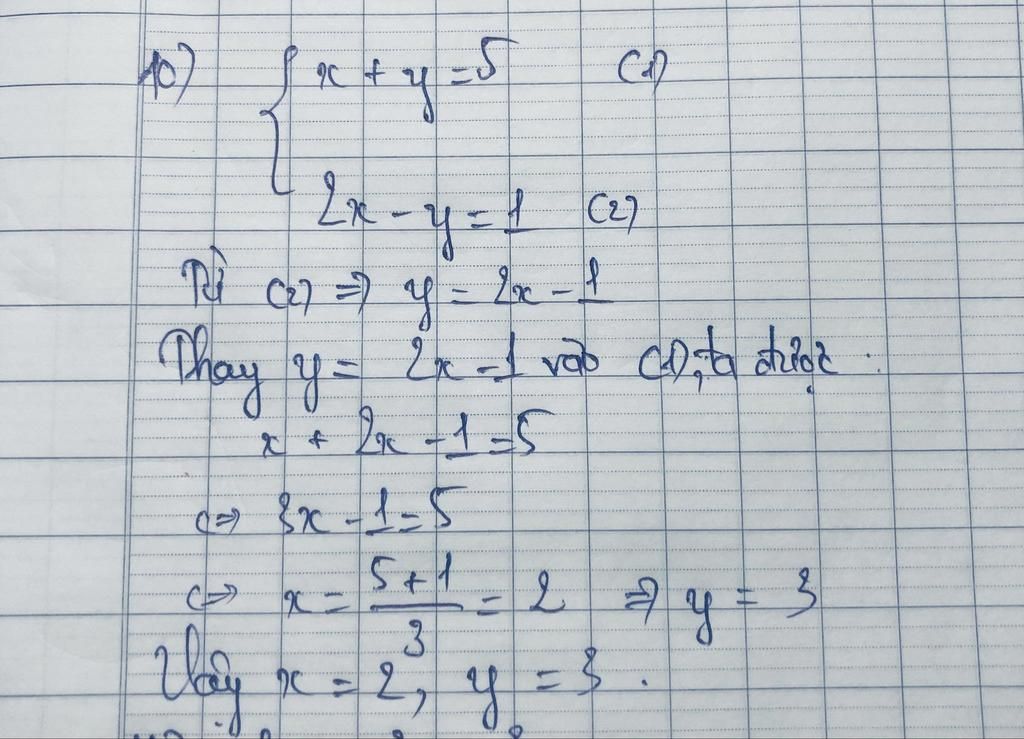 10) { x + y = 5 (1)
2x - y = 1 (2)
Từ (2) => y = 2x - 1
Thay y = 2x - 1 vào (1), ta được :
x + 2x - 1 = 5
<=> 3x - 1 = 5
<=> x = (5 + 1)/3 = 2 => y = 3
Vậy x = 2, y = 3 .